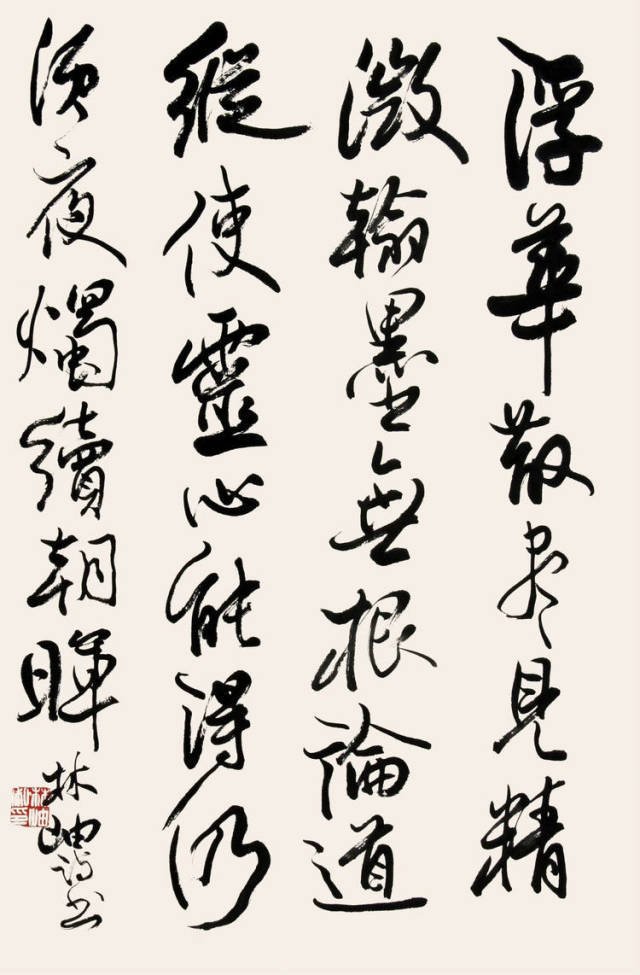 浮華散盡見精
微翰墨無根論道
縱使靈心能得仍
須夜燭續朝暉
林岫詩書
林岫